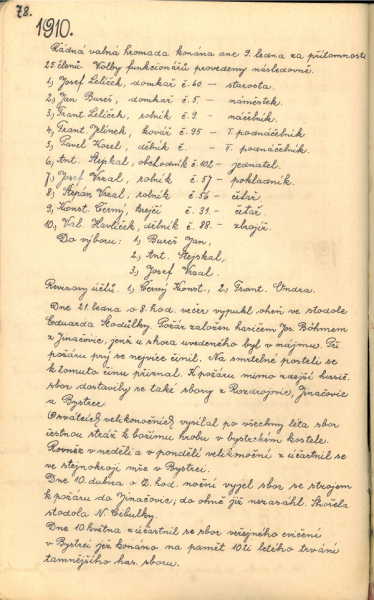 78.
1910.
Řádná valná hromada konána dne 9. ledna za přítomnosti
25 členů. Volby funkcionářů provedeny následovně.
1, Josef Lelíček, domkař č. 60 – starosta.
2, Jan Bureš, domkař č. 5. – náměstek.
3, Frant. Lelíček, rolník č. 9. – náčelník.
4, Frant. Jelínek, kovář č. 95 – I. podnáčelník
5, Pavel Korel, dělník č. – II. podnáčelník.
6, Ant. Stejskal, obchodník č. 102 – jednatel.
7, Josef Vrzal, rolník č. 57 – pokladník.
8, Štěpán Vrzal, rolník č. 56 – četař.
9, Konst. Černý, krejčí č. 31. – četař.
10, Val. Havlíček, dělník č. 88. – zbrojíř.
Do výboru: 1, Bureš Jan,
2, Ant. Stejskal,
3, Josef Vrzal.
Revisory účtů. 1, Černý Konst., 2, Frant. Ondra.
Dne 21. ledna o 8. hod. večer vypukl oheň ve stodole
Eduarda Škodůlky. Požár založen hasičem Jos. Böhmem
z Jinačovic, jenž u shora uvedeného byl v nájmu. Při
požáru prý se nejvíce činil. Na smrtelné posteli se
k tomuto činu přiznal. K požáru mimo zdejší hasič.
sbor dostavily se také sbory z Rozdrojovic, Jinačovic
a Bystrce.
O svátcích velikonočních vysílal po všechny léta sbor
čestnou stráž k božímu hrobu v bysteckém kostele.
Rovněž v neděli a v pondělí velikonoční zúčastnil se
ve stejnokroji mše v Bystrci.
Dne 10. dubna o 2. hod. noční vyjel sbor se strojem
k požáru do Jinačovic; do ohně již nezasáhl. Shořela
stodola N. Cibulky.
Dne 10. května zúčastnil se sbor veřejného cvičení
v Bystrci jež konáno na pamět 10ti letého trvání
tamnějšího has. sboru.